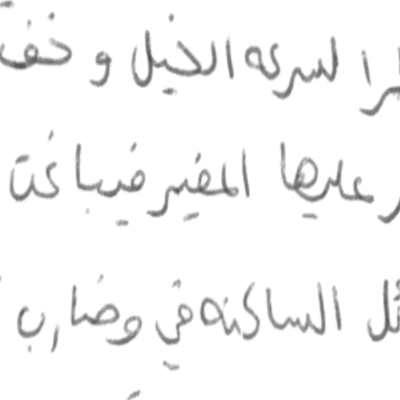 را لسرعه الخيل و خفة
ر عليها المغير فيباغت
ئل الساكنه في وضارب